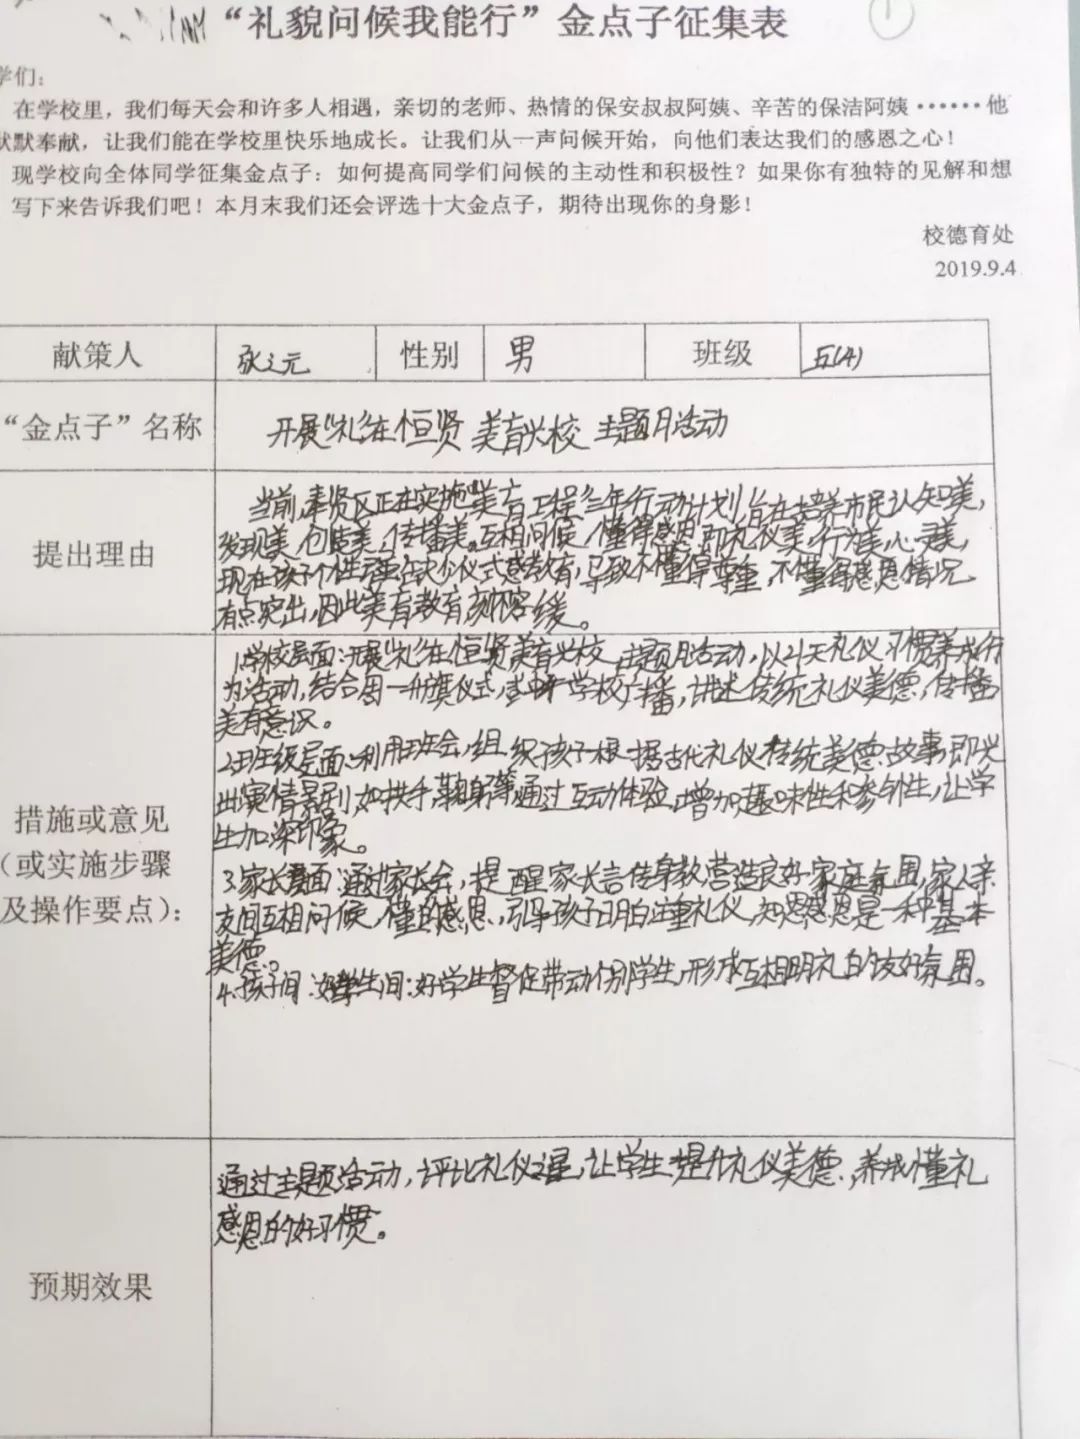 “礼貌问候我能行”金点子征集表
学们：
在学校里，我们每天会和许多人相遇，亲切的老师、热情的保安叔叔阿姨、辛苦的保洁阿姨······他
默默奉献，让我们能在学校里快乐地成长。让我们从一声问候开始，向他们表达我们的感恩之心！
现学校向全体同学征集金点子：如何提高同学们问候的主动性和积极性？如果你有独特的见解和想
写下来告诉我们吧！本月末我们还会评选十大金点子，期待出现你的身影！
校德育处
2019.9.4
献策人 张之元 性别 男 班级 五(4)
“金点子”名称 开展“礼”在恒贤 美育兴校 主题月活动
提出理由
当前,奉贤区正在实施“美育工程”三年行动计划,旨在培养市民认知美,
发现美,创造美,传播美。互相问候,懂得感恩,即礼仪美,行为美,心灵美,
现在孩子个性强,缺少仪式感教育,导致不懂得尊重,不懂得感恩情况
有点突出,因此美育教育刻不容缓。
措施或意见
（或实施步骤
及操作要点）：
1.学校层面:开展“礼”在恒贤 美育兴校 主题月活动,以21天礼仪习惯养成行
为活动,结合周一升旗仪式,学校广播,讲述传统礼仪美德,传播
美育意识。
2.班级层面:利用班会,组织孩子根据古代礼仪传统美德故事即兴
出演情景剧,如拱手,鞠躬等通过互动体验,增加趣味性和参与性,让学
生加深印象。
3.家长层面:通过家长会,提醒家长言传身教,营造良好家庭氛围,家人亲
友间互相问候,懂的感恩,引导孩子明白注重礼仪,知恩感恩是一种基本
美德。
4.孩子间:学生间:好学生督促带动个别学生,形成互相明礼的友好氛围。
预期效果
通过主题活动,评比礼仪之星,让学生提升礼仪美德,养成懂礼
感恩的好习惯。